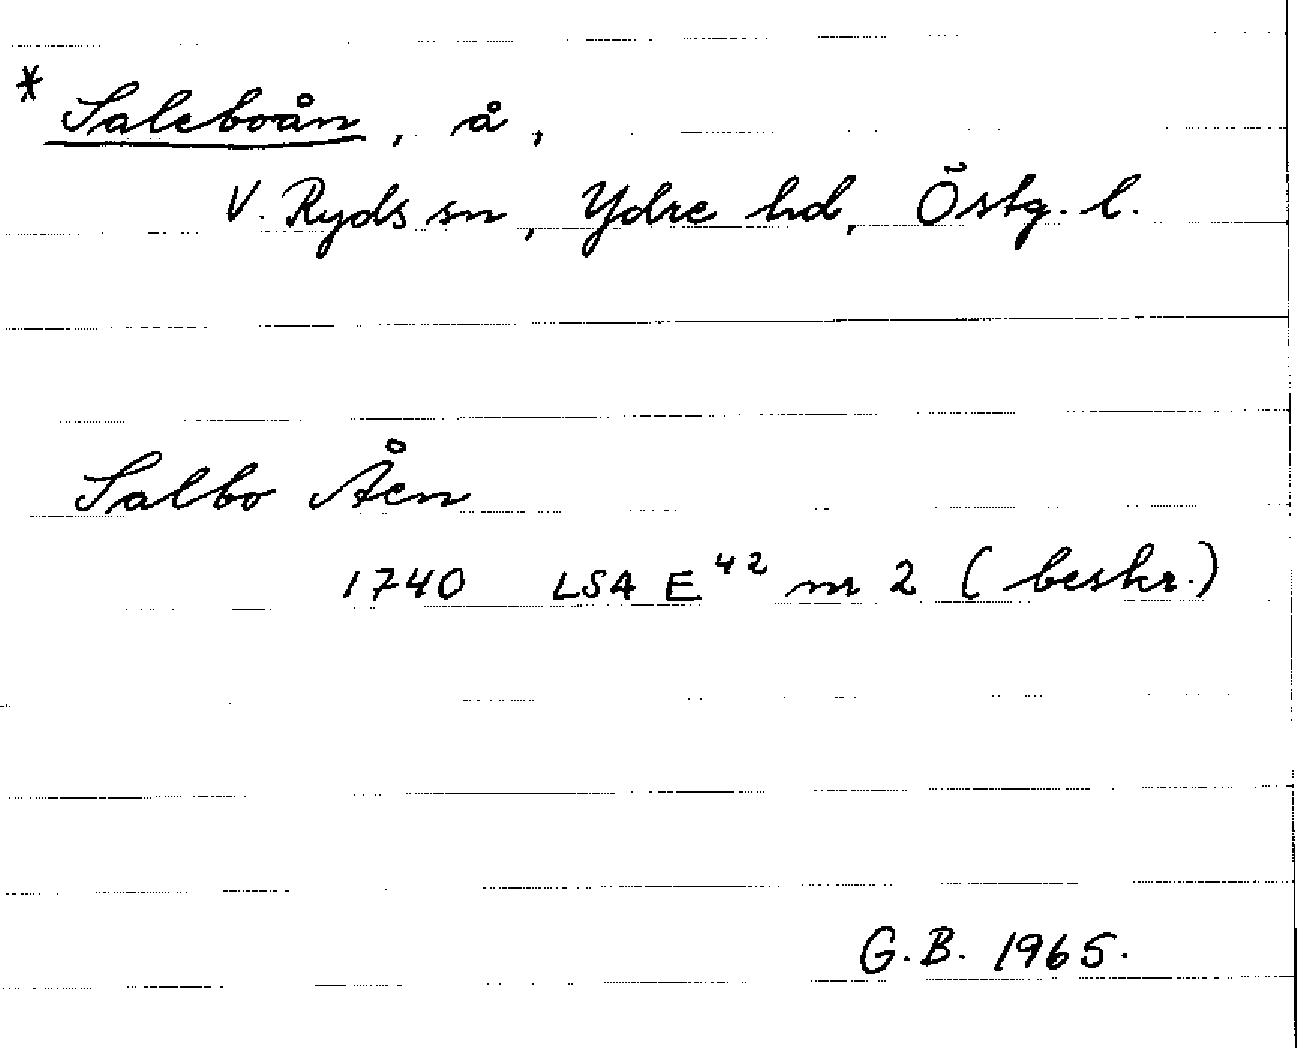 * Saleboån, å,
V. Ryds sn, Ydre hd, Östg. l.
Salbo Åen
1740 LSA E⁴² nr 2 (beskr.)
G.B. 1965.